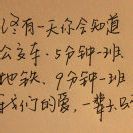 终有一天你会知道
公交车、5分钟一班
地铁、9分钟一班
我们的爱,一辈